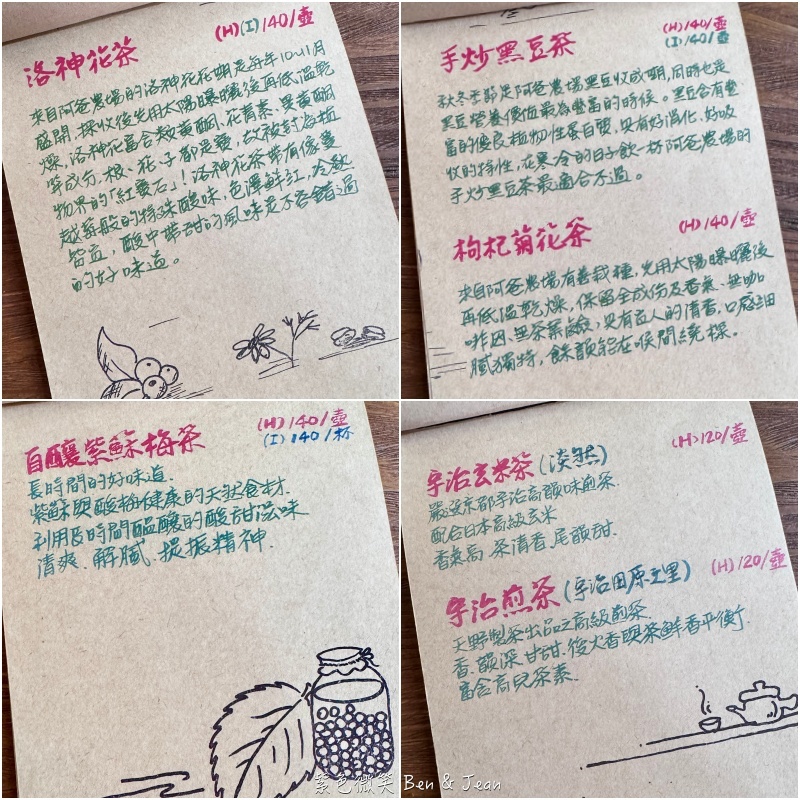 洛神花茶
(H)(I)140/壺
來自阿爸農場的洛神花花期是每年10~11月
盛開,採收後先用太陽曝曬後再低溫乾
燥,洛神花富含類黃酮、花青素、異黃酮
等成分,根、花、子都是寶,故被封為植
物界的「紅寶石」!洛神花茶帶有像蔓
越莓般的特殊酸味,色澤鮮紅,冷熱
皆宜,酸中帶甜的風味是不容錯過
的好味道。
手炒黑豆茶
(H)140/壺
(I)140/壺
秋冬季節是阿爸農場黑豆收成期,同時也是
黑豆營養價值最為豐富的時候。黑豆含有豐
富的優良植物性蛋白質,具有好消化、好吸
收的特性,在寒冷的日子飲一杯阿爸農場的
手炒黑豆茶最適合不過。
枸杞菊花茶
(H)140/壺
來自阿爸農場有善栽種,先用太陽曝曬後
再低溫乾燥,保留全成份及香氣、無咖
啡因、無茶葉鹼,具有宜人的清香,口感細
膩獨特,餘韻能在喉間繞樑。
自釀紫蘇梅茶
(H)140/壺
(I)140/杯
長時間的好味道.
紫蘇與酸梅健康的天然食材.
利用長時間醞釀的酸甜滋味
清爽.解膩.提振精神.
宇治玄米茶(淡然)
(H)120/壺
嚴選京都宇治高韻味煎茶.
配合日本高級玄米
香氣高.茶清香.尾韻甜.
宇治煎茶(宇治田原之里)
(H)120/壺
天野製茶出品之高級煎茶.
香.韻深.甘甜.後火香與茶鮮香平衡.
富含高兒茶素.
紫色微笑 Ben & Jean